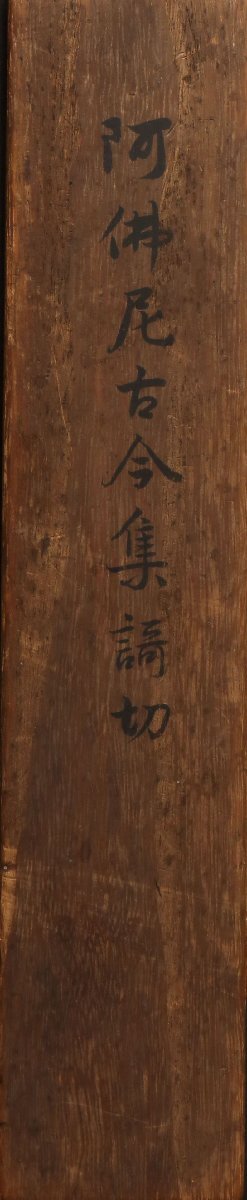 阿佛尼古今集謌切